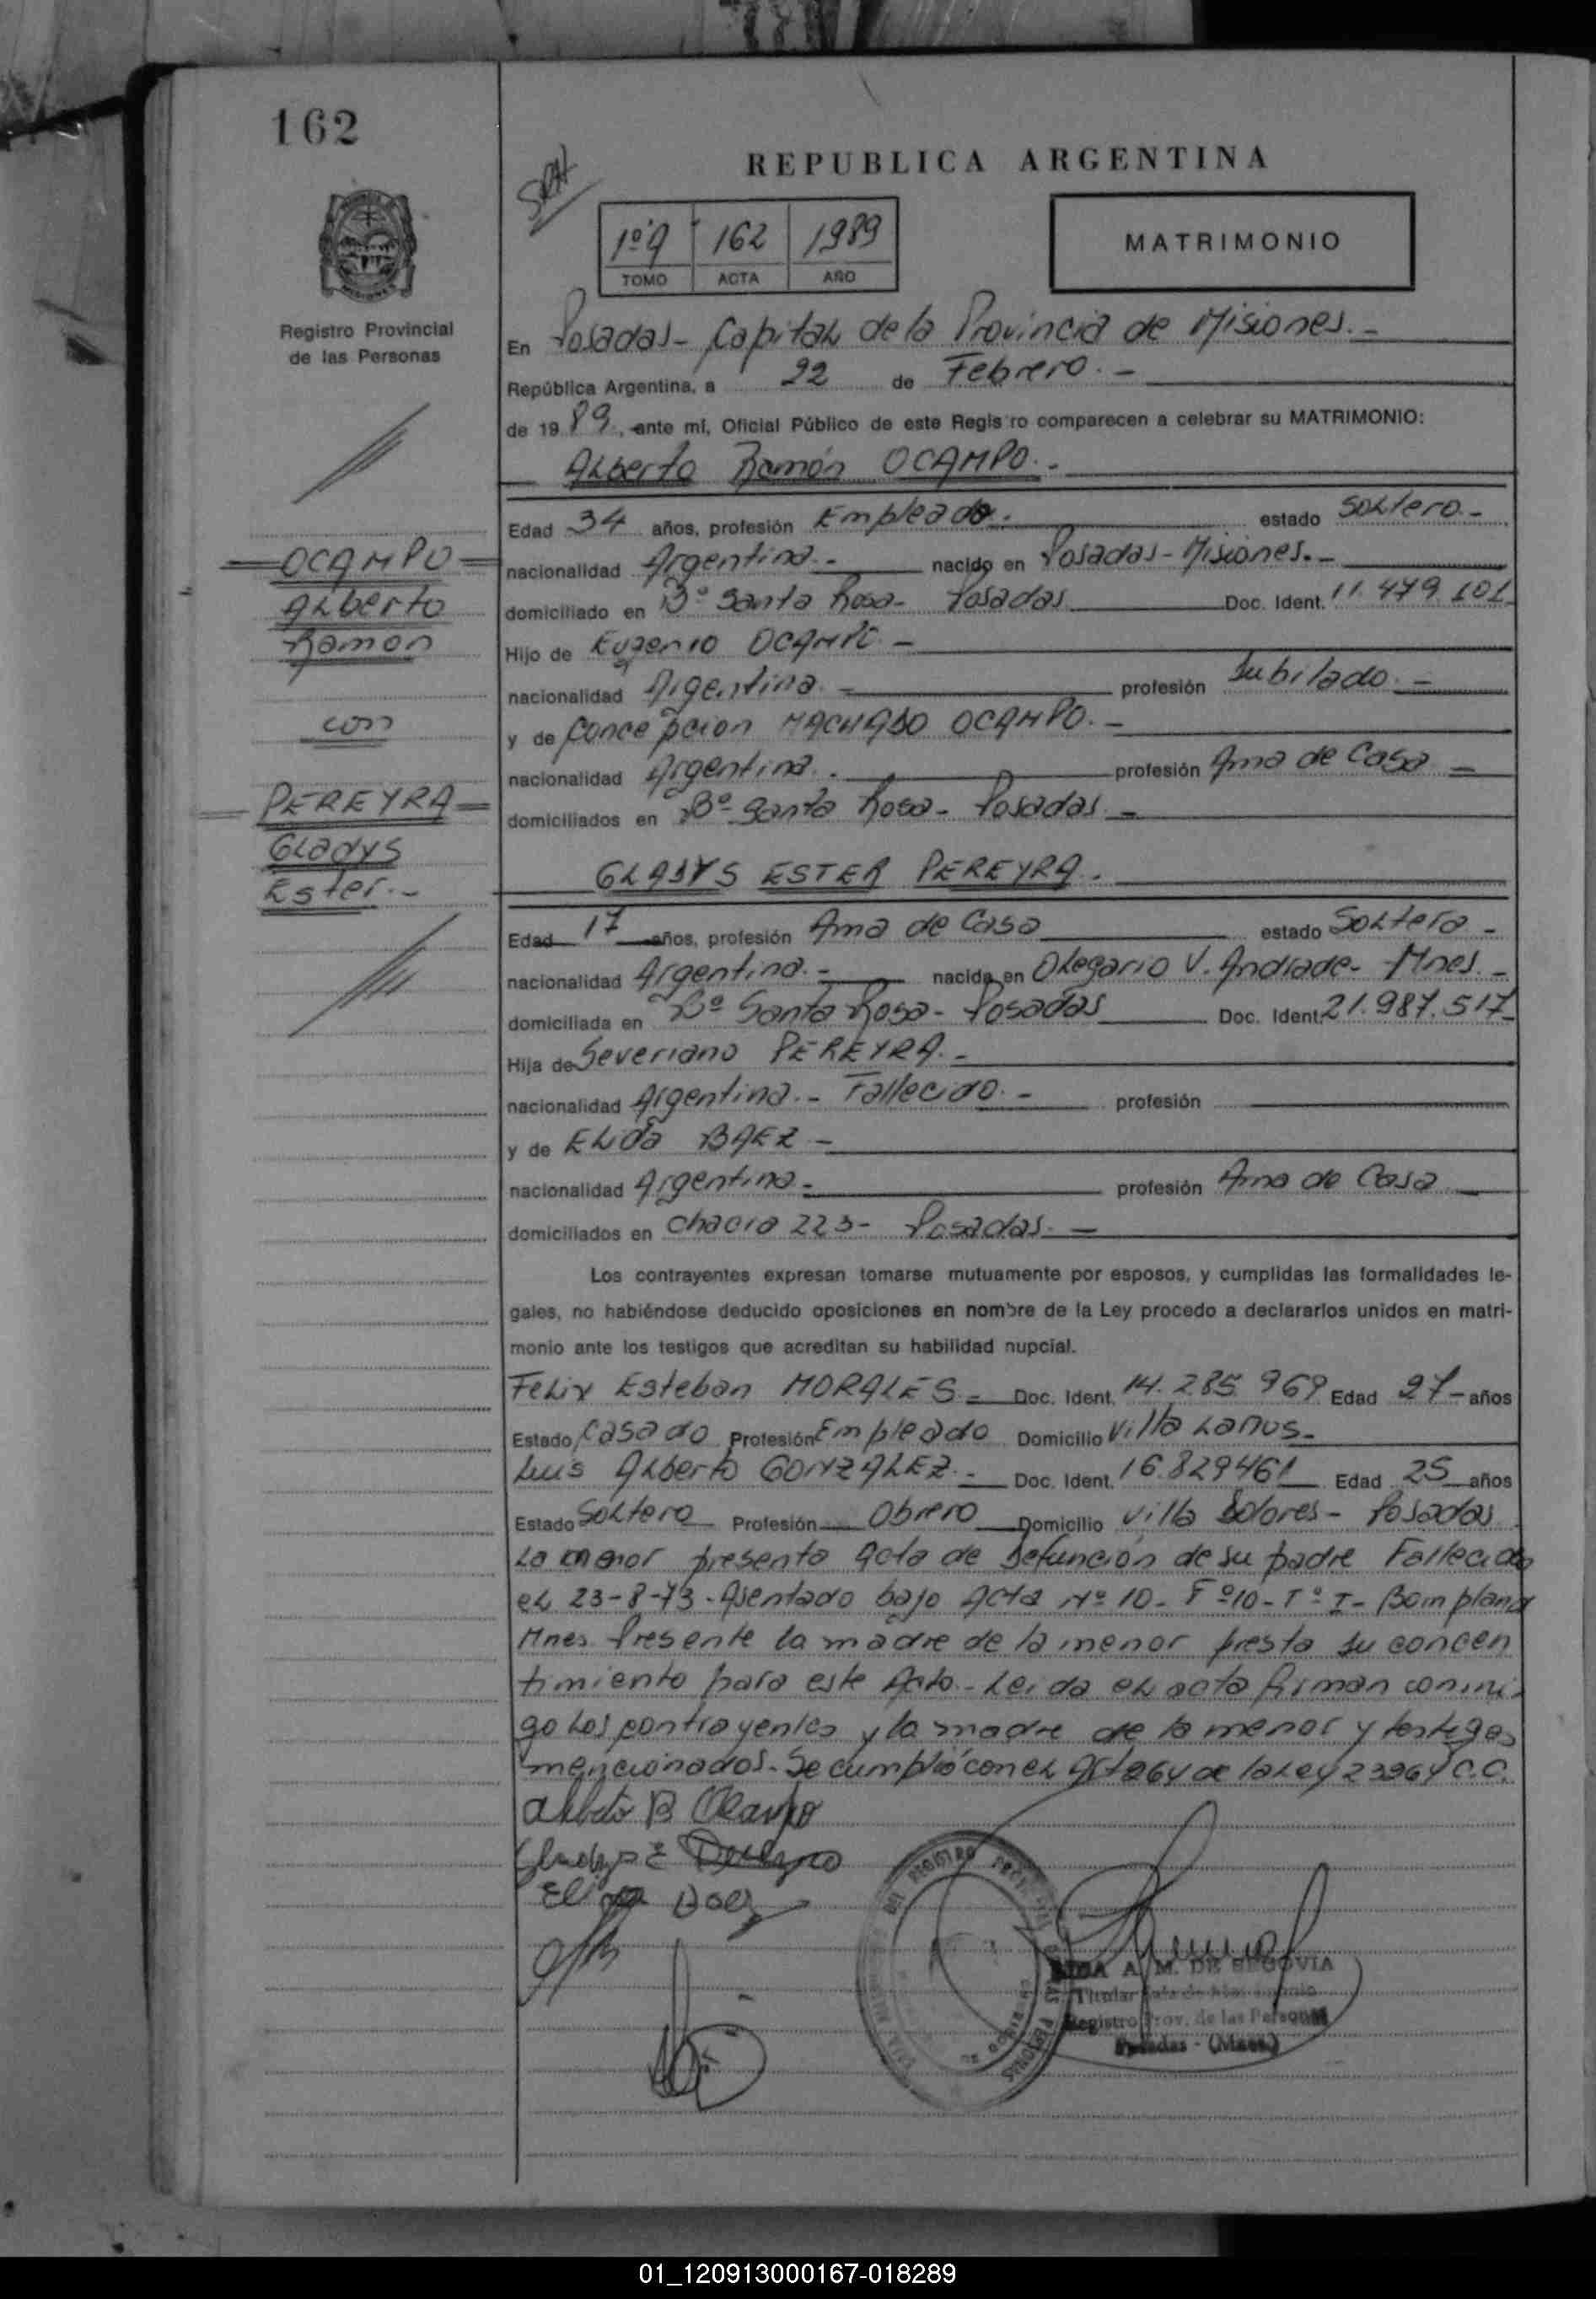 162
REPUBLICA ARGENTINA
1º A 162 1989
TOMO ACTA AÑO
MATRIMONIO
Registro Provincial
de las Personas
En Posadas - Capital de la Provincia de Misiones. -
República Argentina, a 22 de Febrero. -
de 1989, ante mí, Oficial Público de este Registro comparecen a celebrar su MATRIMONIO:
Alberto Ramón OCAMPO. -
Edad 34 años, profesión Empleado. estado Soltero -
nacionalidad Argentina. - nacido en Posadas - Misiones. -
domiciliado en Bº Santa Rosa - Posadas Doc. Ident. 11.479.101
Hijo de Eugenio OCAMPO. -
nacionalidad Argentina. - profesión Jubilado. -
y de Concepcion MACHADO OCAMPO. -
nacionalidad Argentina. profesión Ama de Casa -
domiciliados en Bº Santa Rosa - Posadas. -
OCAMPO
Alberto
Ramon
con
PEREYRA
Gladys
Ester. -
GLADYS ESTER PEREYRA.
Edad 17 años, profesión Ama de Casa estado Soltera -
nacionalidad Argentina. - nacida en Olegario V. Andrade - Mnes. -
domiciliada en Bº Santa Rosa - Posadas Doc. Ident. 21.987.517
Hija de Severiano PEREYRA. -
nacionalidad Argentina. - Fallecido. - profesión
y de Elida BAEZ -
nacionalidad Argentina. profesión Ama de Casa
domiciliados en Chacra 223 - Posadas. -
Los contrayentes expresan tomarse mutuamente por esposos, y cumplidas las formalidades le-
gales, no habiéndose deducido oposiciones en nombre de la Ley procedo a declararlos unidos en matri-
monio ante los testigos que acreditan su habilidad nupcial.
Felix Esteban MORALES - Doc. Ident. 14.285.969 Edad 27 - años
Estado Casado Profesión Empleado Domicilio Villa Lanus -
Luis Alberto GONZALEZ. - Doc. Ident. 16.829461 Edad 25 años
Estado Soltero Profesión Obrero Domicilio Villa Dolores - Posadas
La menor presenta Acta de Defunción de su padre Fallecido
el 23-8-73 - Asentado bajo Acta Nº 10 - Fº 10 - Tº I - Bompland
Mnes. Presente la madre de la menor presta su concen
timiento para este Acto. - Leida el acta firman conmi-
go los contrayentes y la madre de la menor y testigos
mencionados. - Se cumplió con el Art 264 de la Ley 23264 C.C.
Alberto R Ocampo
Gladys E Pereyra
Elida Baez
A. M. DE SEGOVIA
Titular
Registro Prov. de las Personas
Posadas - (Mnes.)
01_120913000167-018289